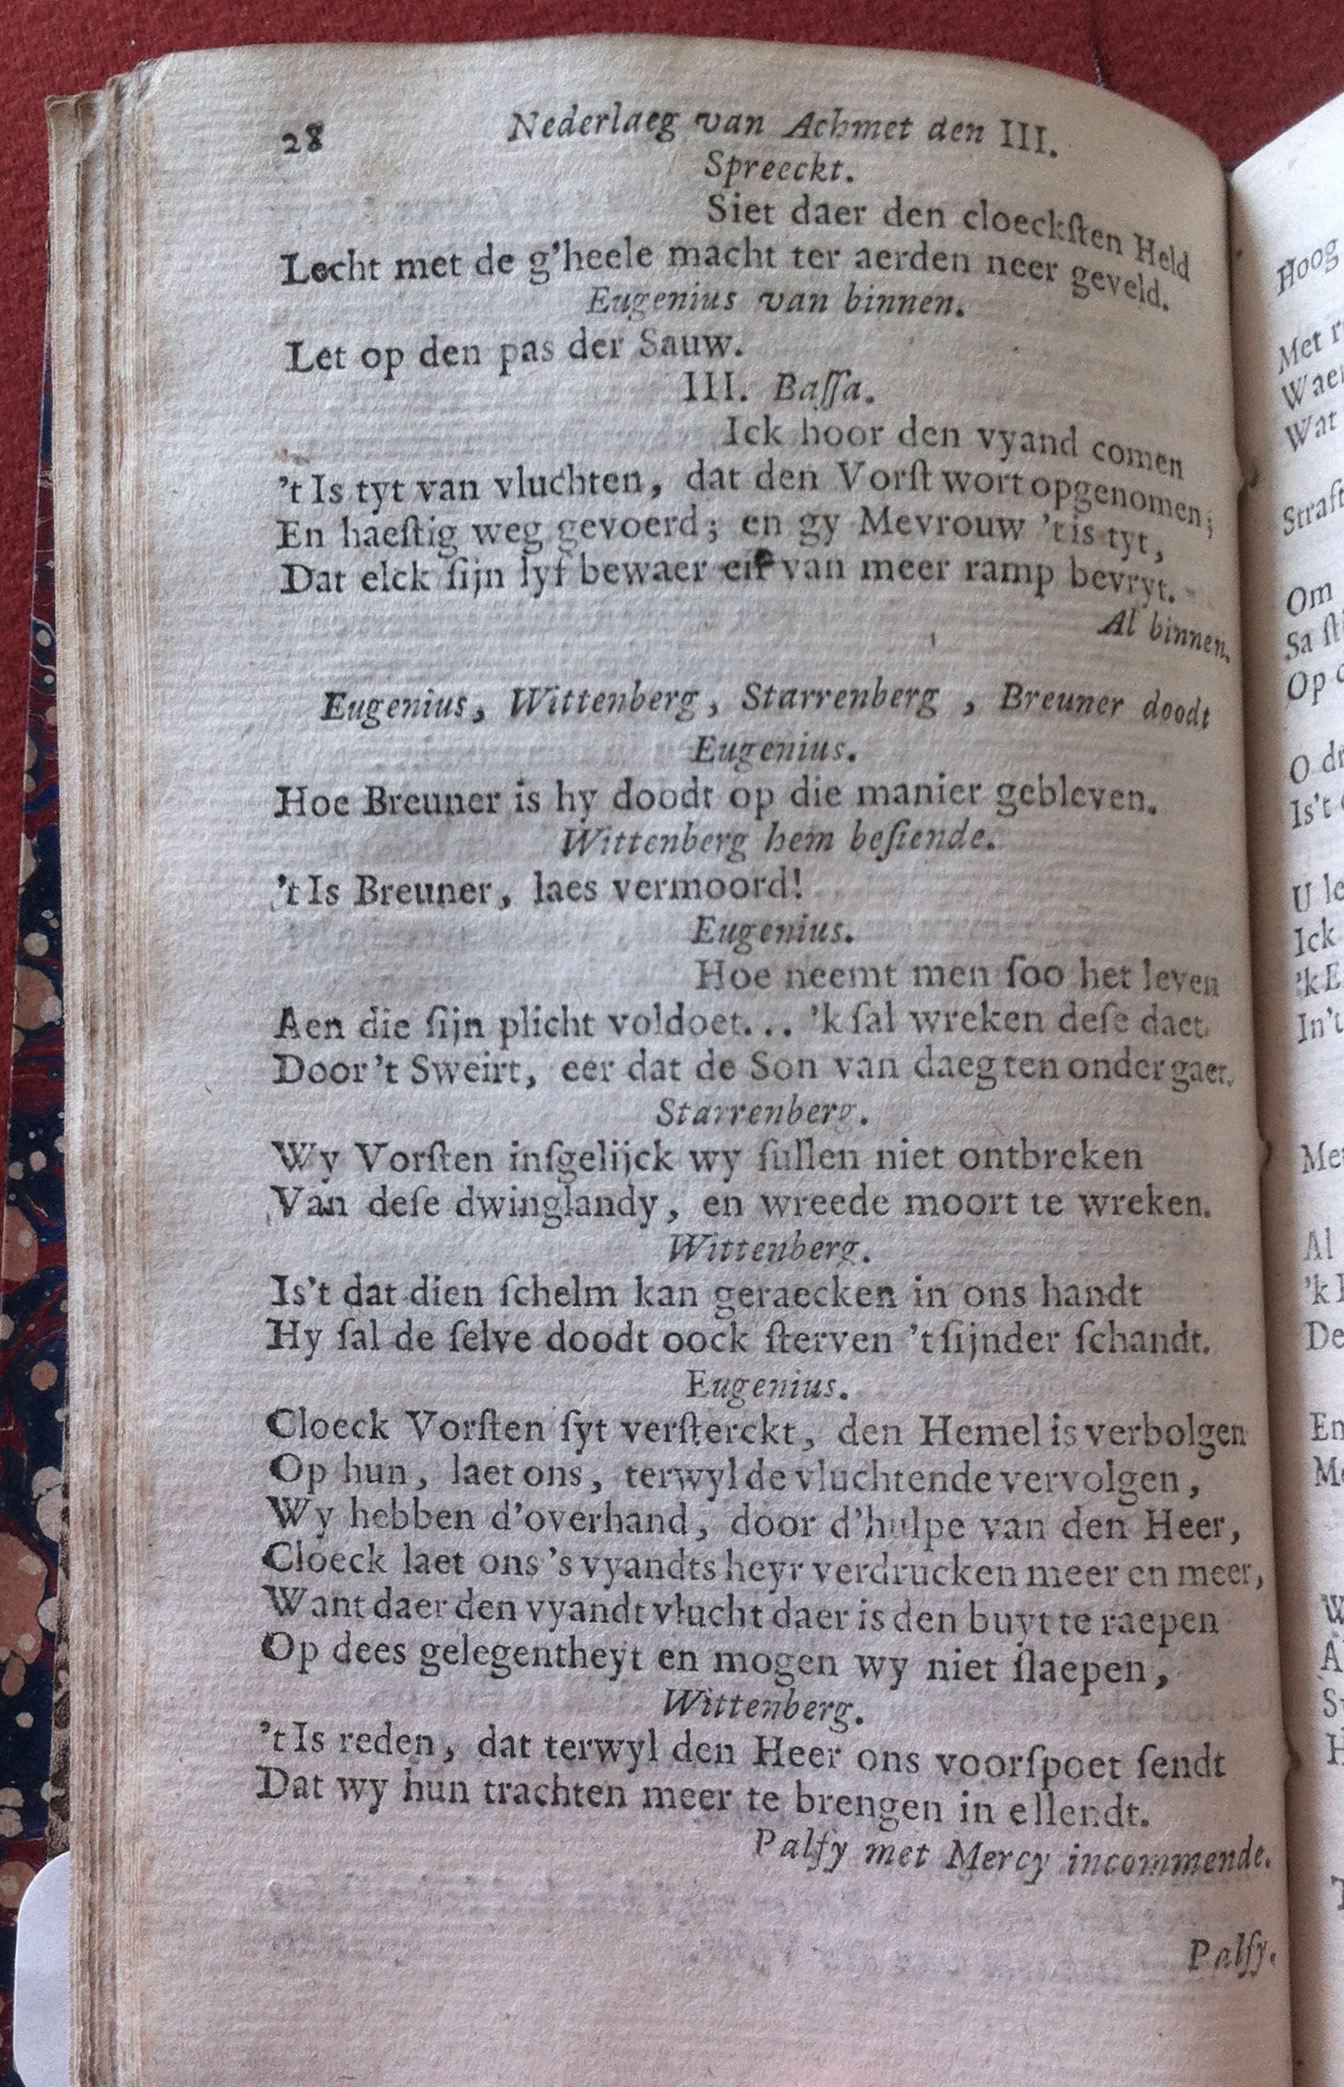 28 Nederlaeg van Achmet den III.
Spreeckt.
Siet daer den cloeckſten Held
Lecht met de g'heele macht ter aerden neer geveld.
Eugenius van binnen.
Let op den pas der Sauw.
III. Baſſa.
Ick hoor den vyand comen
't Is tyt van vluchten, dat den Vorſt wort opgenomen;
En haeſtig weg gevoerd; en gy Mevrouw 't is tyt,
Dat elck ſijn lyf bewaer en van meer ramp bevryt.
Al binnen.
Eugenius, Wittenberg, Starrenberg, Breuner doodt
Eugenius.
Hoe Breuner is hy doodt op die manier gebleven.
Wittenberg hem beſiende.
't Is Breuner, laes vermoord!
Eugenius.
Hoe neemt men ſoo het leven
Aen die ſijn plicht voldoet... 'k ſal wreken deſe daet
Door 't Sweirt, eer dat de Son van daeg ten onder gaet.
Starrenberg.
Wy Vorſten inſgelijck wy ſullen niet ontbreken
Van deſe dwinglandy, en wreede moort te wreken.
Wittenberg.
Is't dat dien ſchelm kan geraecken in ons handt
Hy ſal de ſelve doodt oock ſterven 't ſijnder ſchandt.
Eugenius.
Cloeck Vorſten ſyt verſterckt, den Hemel is verbolgen
Op hun, laet ons, terwyl de vluchtende vervolgen,
Wy hebben d'overhand, door d'hulpe van den Heer,
Cloeck laet ons 's vyandts heyr verdrucken meer en meer,
Want daer den vyandt vlucht daer is den buyt te raepen
Op dees gelegentheyt en mogen wy niet ſlaepen,
Wittenberg.
't Is reden, dat terwyl den Heer ons voorſpoet ſendt
Dat wy hun trachten meer te brengen in ellendt.
Palfy met Mercy incommende.
Palfy.
Hoog
Met
Waer
Wat
Om
Op
O
Is't
U
Ick
'k
In't
Al
'k
De
En